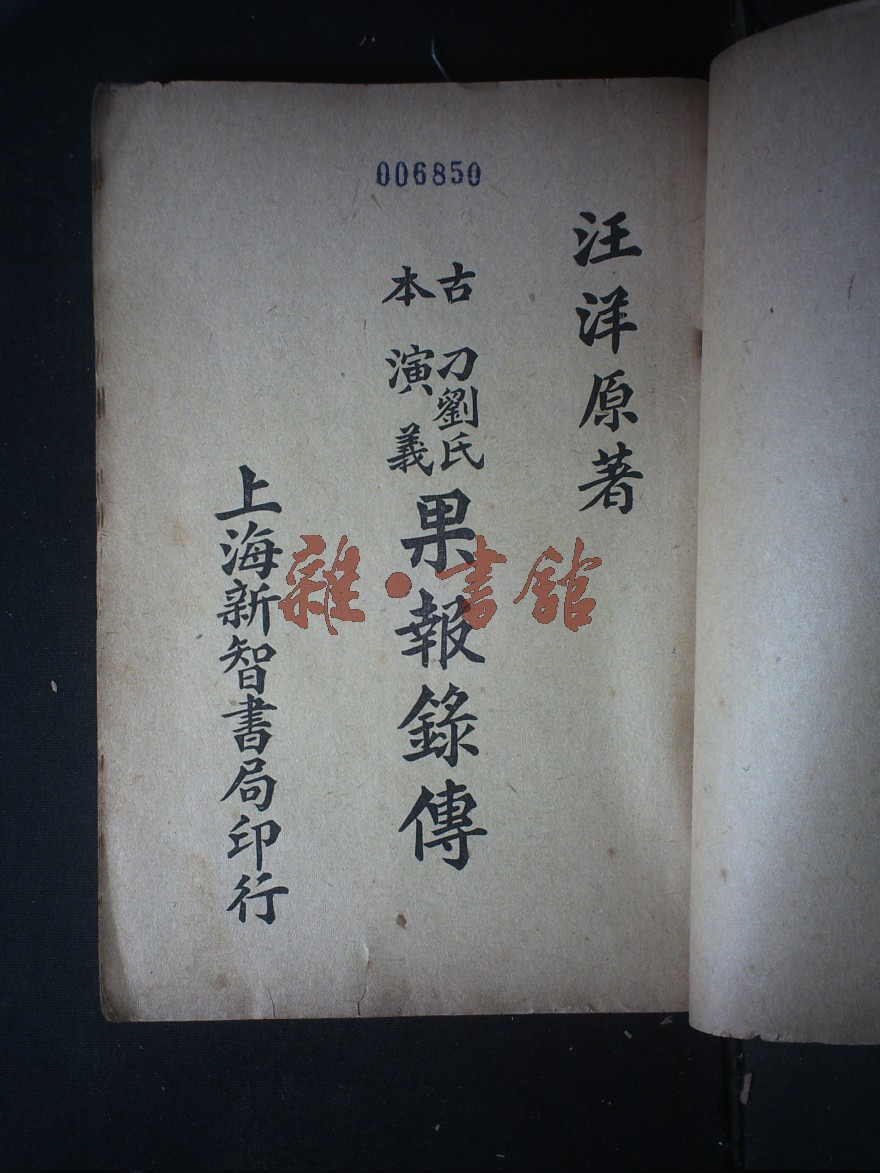 006850
汪洋原著
古本
刁劉氏
演義
果報錄傳
上海新智書局印行
雜·書館